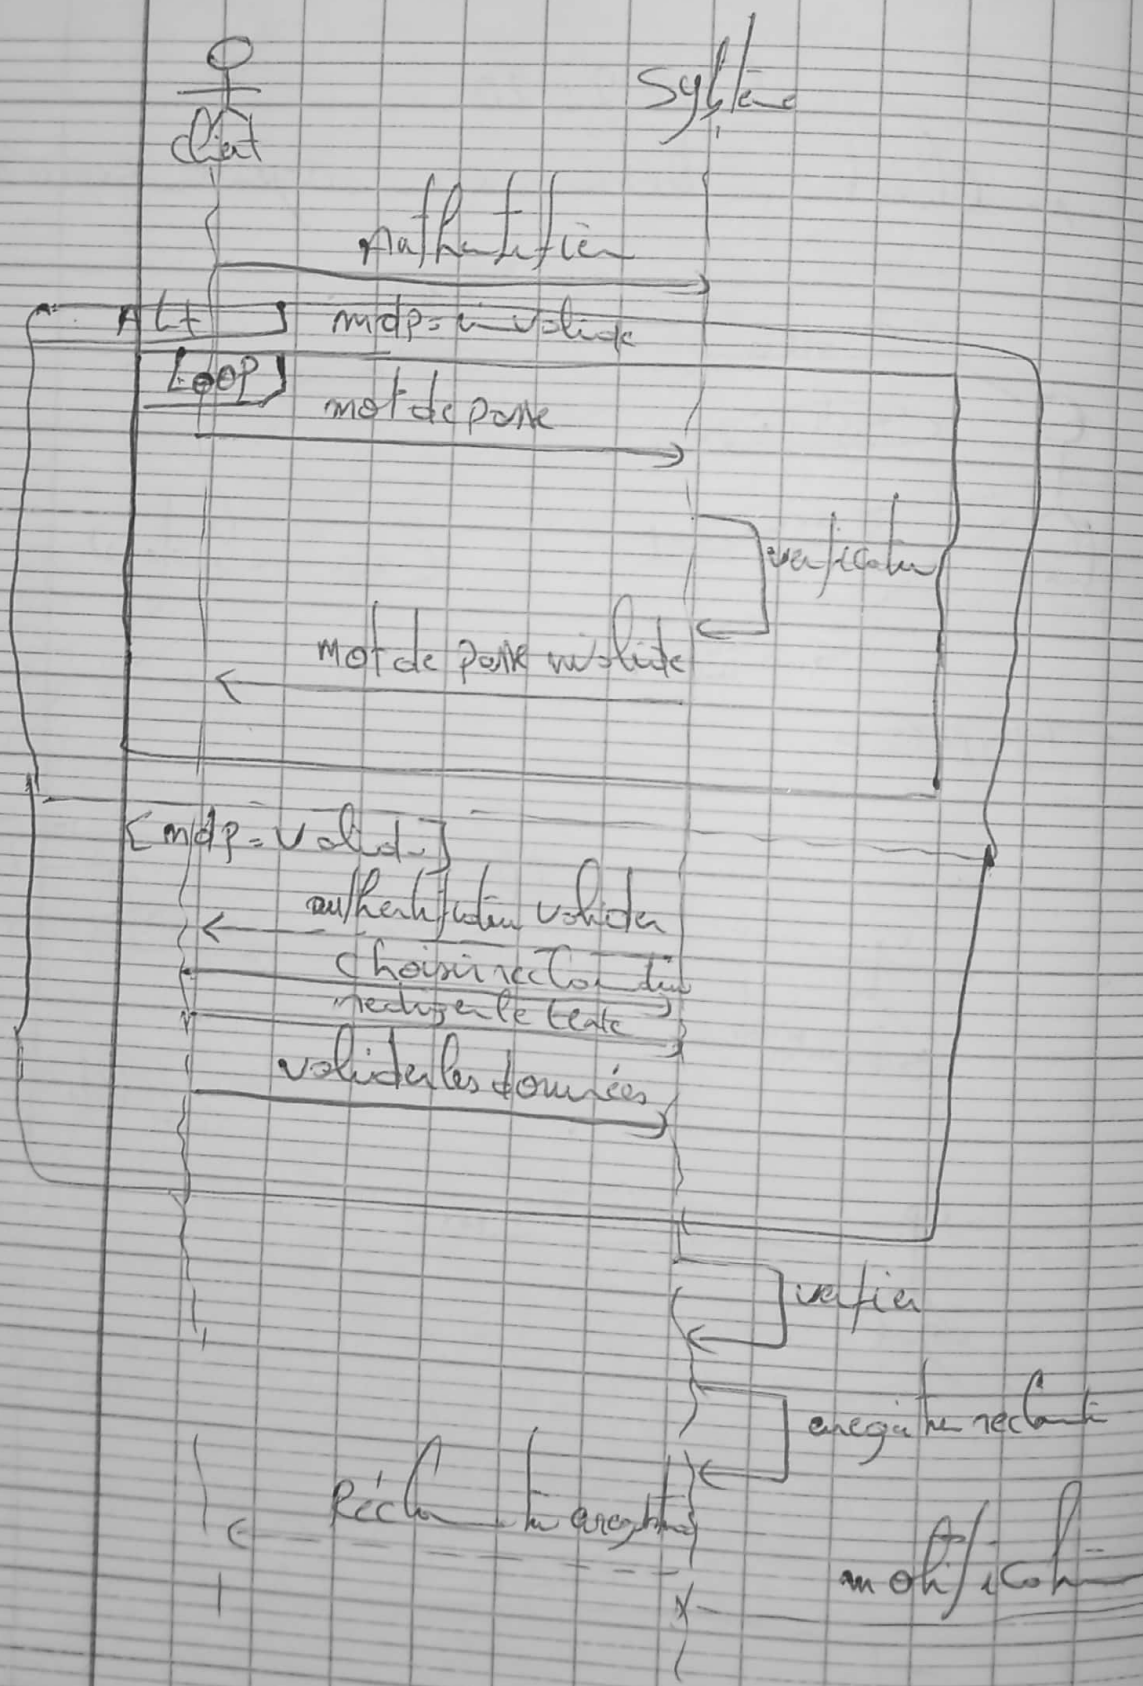 Système
client
Authentifier
Alt mdp=invalide
Loop
mot de passe
verification
mot de passe invalide
[mdp=valide]
authentification valider
choisir reclamation
rediger le texte
valider les données
verifier
enregistrer reclamation
Réclamation enregistrée
notification